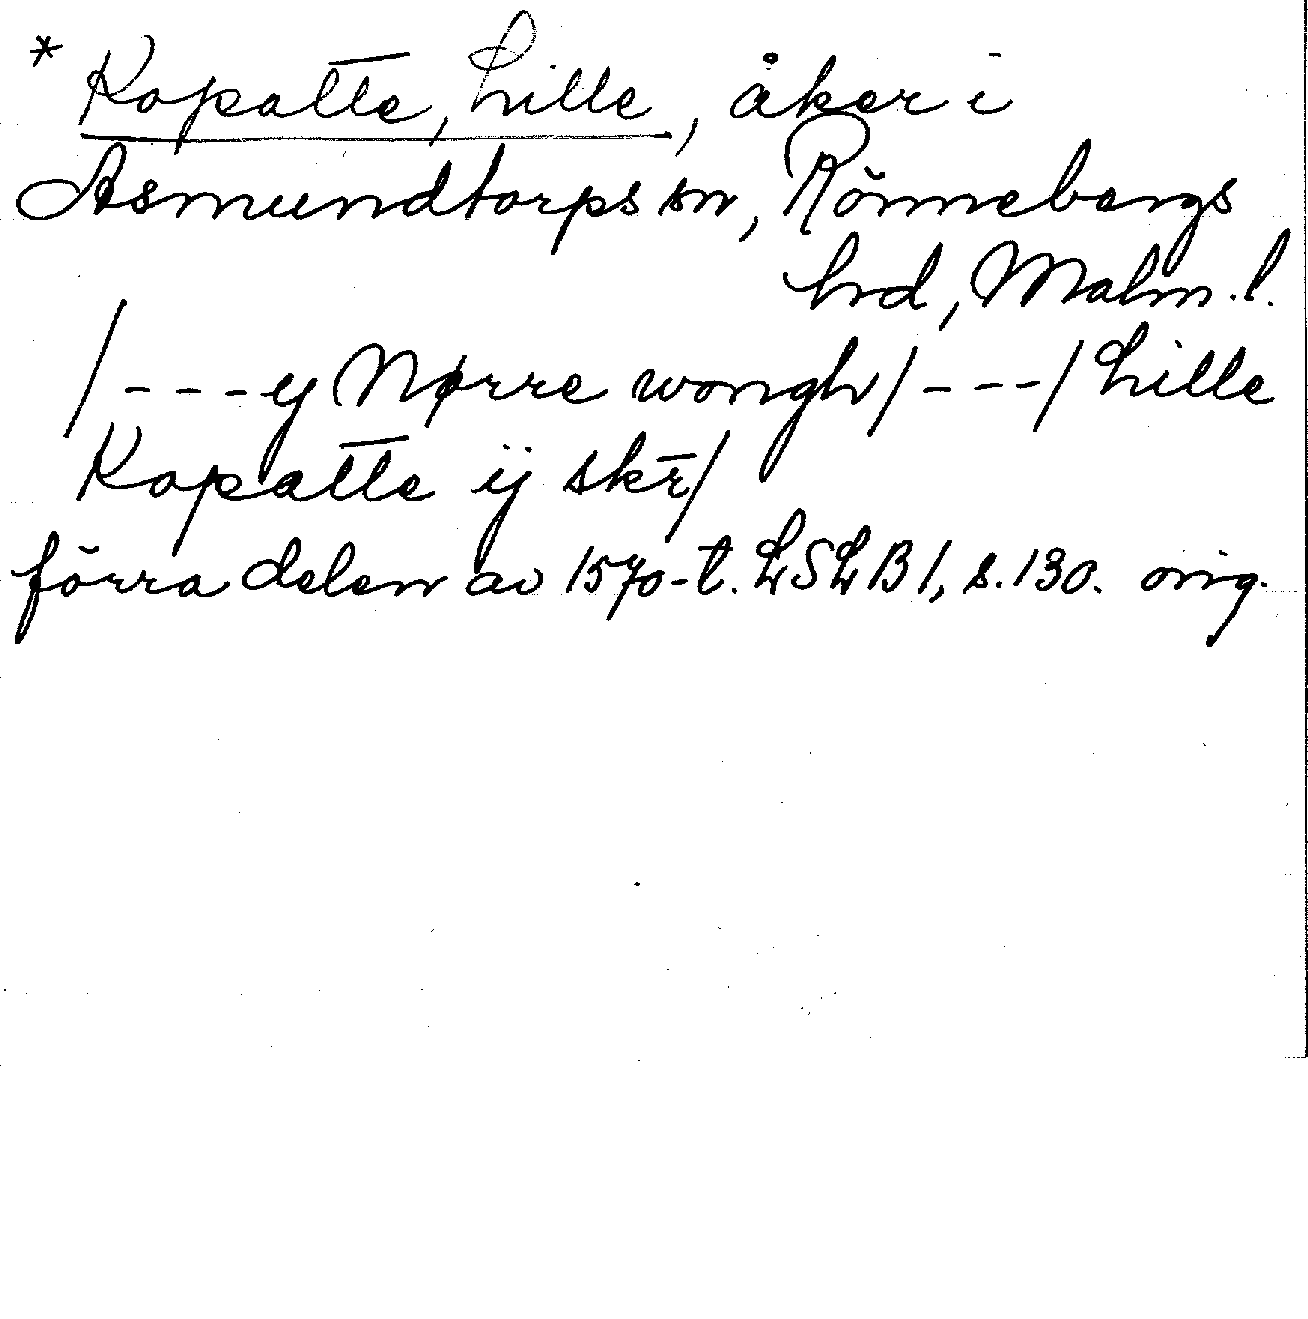 * Kopatte, Lille, åker i
Asmundtorps sn, Rönnebergs
hrd, Malm.l.
/---y Nørre wongh/---/Lille
Kopatte ij skr̄/
förra delen av 1570-t. LSLB1, s.130. orig.